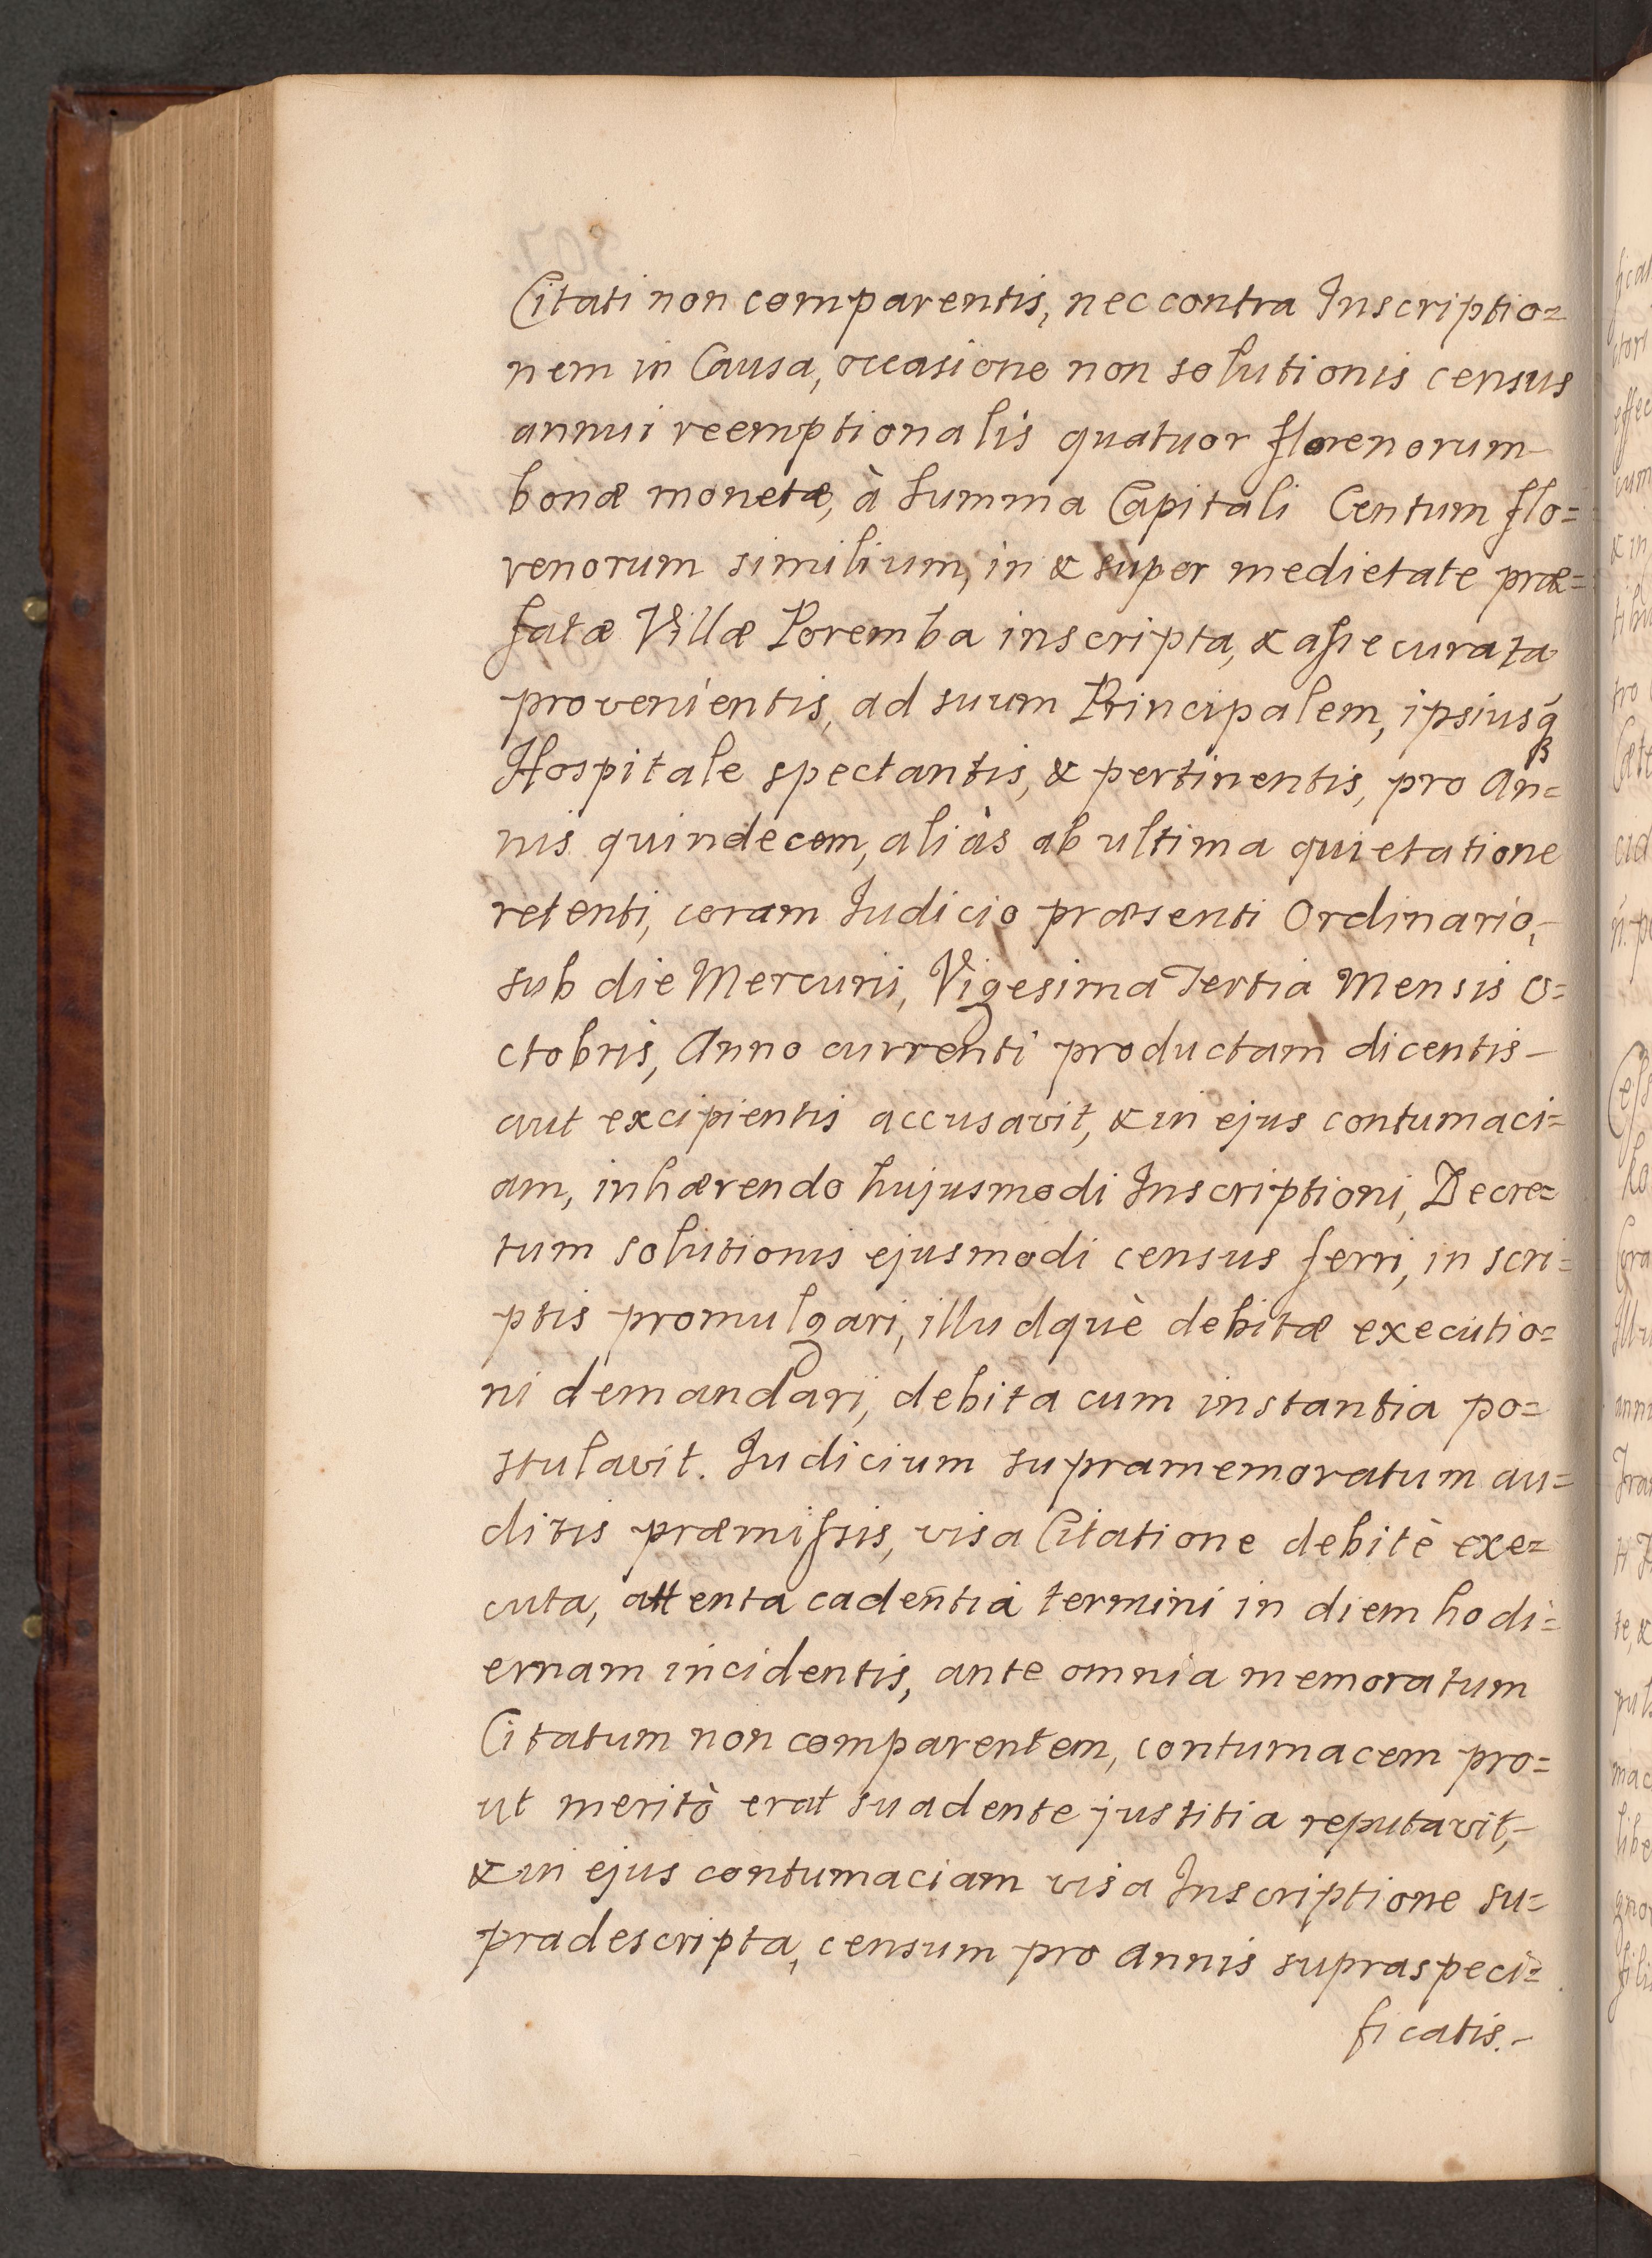 Citati non comparentis, nec contra Inscriptio=
nem in Causa, occasione non solutionis census
annui reemptionalis quatuor florenorum
bonæ monetæ, à summa Capitali Centum flo=
renorum similium, in & super medietate præ=
fatæ Villæ Poremba inscripta, & assecurata
provenientis, ad suum Principalem, ipsiusq́
Hospitale spectantis, & pertinentis, pro An=
nis quindecem, aliàs ab ultima quietatione
retenti, coram Judicio præsenti Ordinario,
sub die Mercurii, Vigesima Tertia Mensis O=
ctobris, Anno currenti productam dicentis
aut excipientis accusavit, & in ejus contumaci=
am, inhærendo hujusmodi Inscriptioni, Decre=
tum solutionis ejusmodi census ferri, in scri=
ptis promulgari, illudquè debitæ executio=
ni demandari, debita cum instantia po=
stulavit. Judicium supramemoratum au=
ditis præmissis, visa Citatione debitè exe=
cuta, attenta cadentia termini in diem hodi=
ernam incidentis, ante omnia memoratum
Citatum non comparentem, contumacem pro=
ut meritò erat suadente justitia reputavit,
& in ejus contumaciam visa Inscriptione su=
pradescripta, censum pro annis supraspeci=
ficatis.